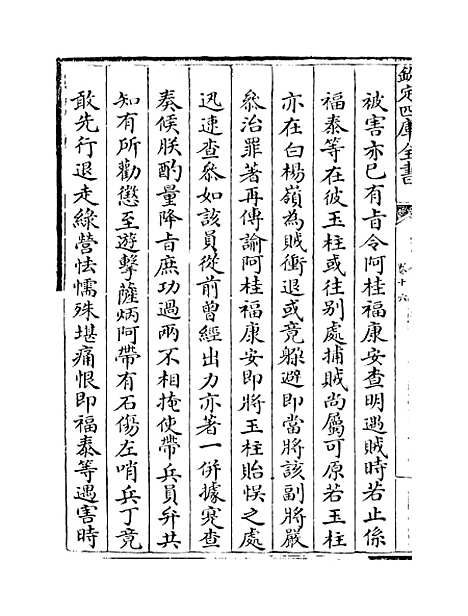 欽定四庫全書
卷十六
被害亦已有旨令阿桂福康安查明遇賊時若止係
福泰等在彼玉柱或往别處捕賊尚屬可原若玉柱
亦在白楊嶺為賊衝退或竟躱避即當將該副將嚴
叅治罪著再傳諭阿桂福康安即將玉柱貽悮之處
迅速查叅如該員從前曾經出力亦著一併據寔查
奏候朕酌量降旨庶功過兩不相掩使帶兵員弁共
知有所勸懲至遊擊薩炳阿帶有石傷左哨兵丁竟
敢先行退走緑營怯懦殊堪痛恨即福泰等遇害時